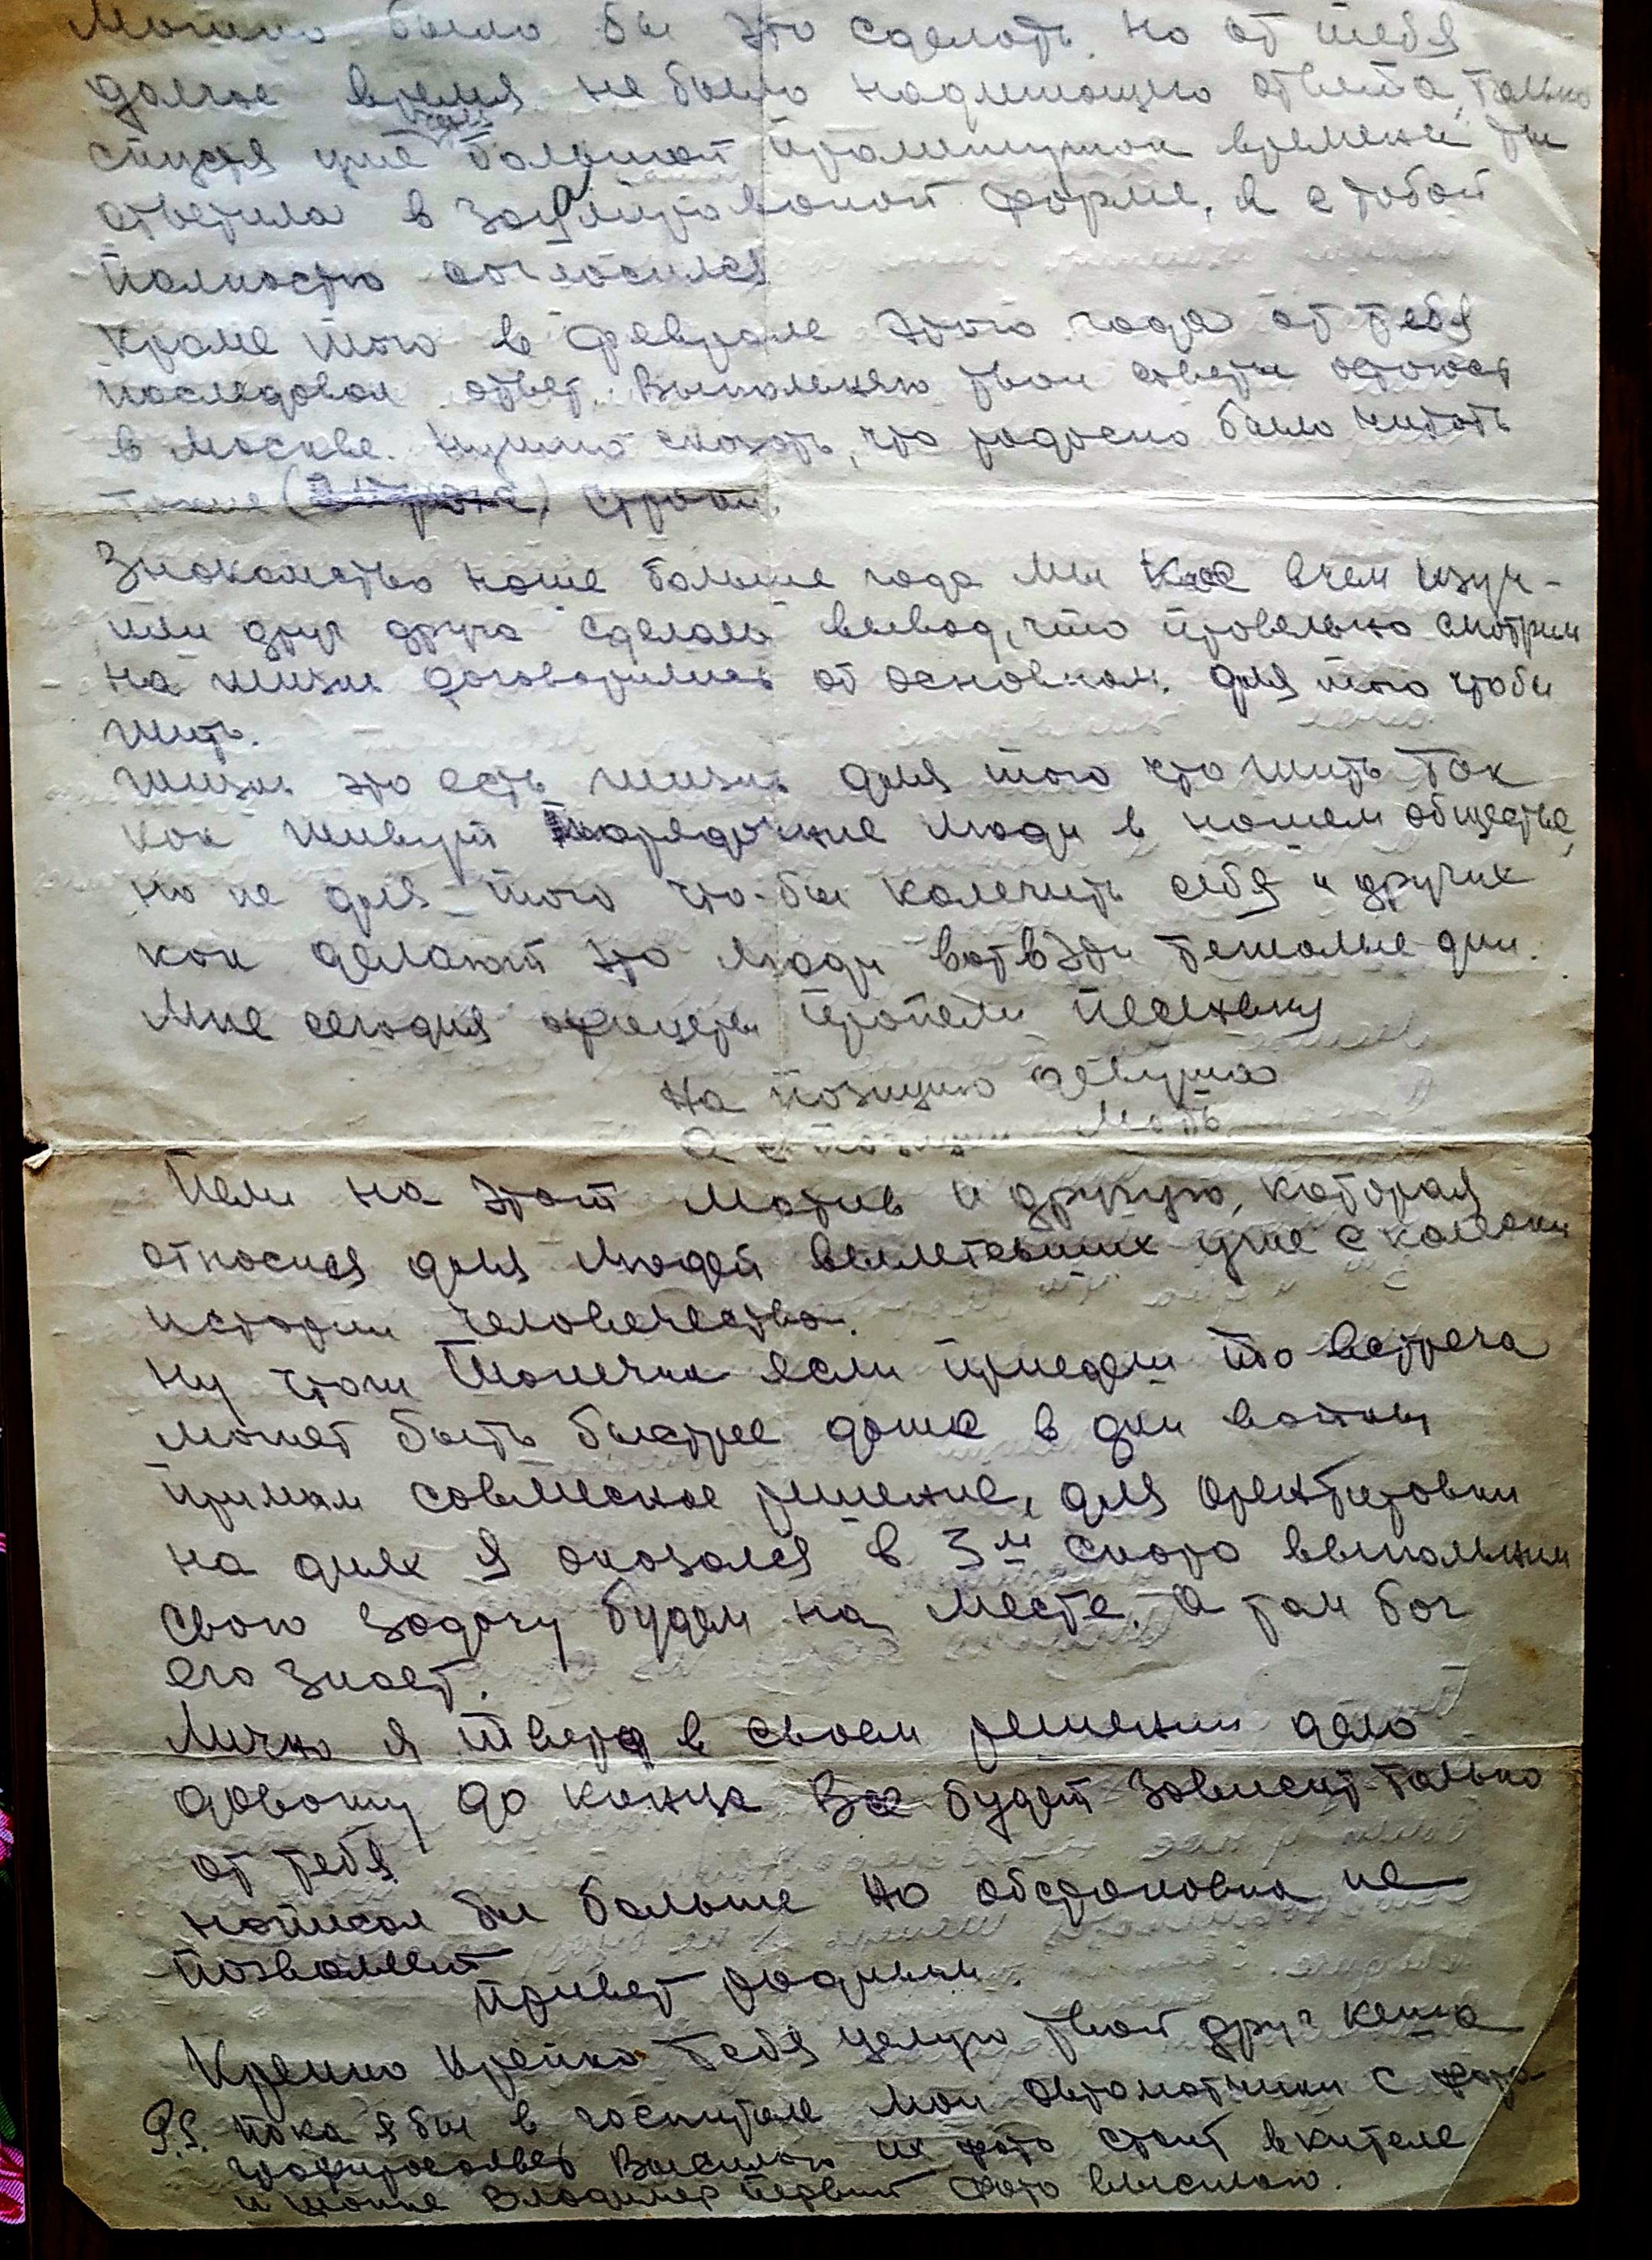 Можно было бы это сделать, но от тебя
долгое время не было надлежащего ответа, только
спустя уже большой промежуток времени ты
ответила в форме, я с тобой
полностью согласился
Кроме того в феврале этого года от тебя
последовал ответ. Выполняю твои советы остаюсь
в Москве. Нужно сказать, что радосно было читать
такие ( ) строки.
Знакомство наше больше года мы кое в чем изуч-
или друг друга сделали вывод, что правельно смотрим
на жизнь договорились об основном. для того чтобы
жить.
жизнь это есть жизнь для того что жить так
как живут порядочные люди в нашем обществе,
но не для того что-бы калечить себя и другие
как делают это люди вот в эти тежолые дни.
Мне сегодня офицеры пропели песенку
На позицию девушка
А с позиции мать
Пели на этот мотив и другую, которая
относися для людей вылетевших уже с коляски
истории человечества.
Ну чтож Тонечка если приедеш то встреча
может быть быстрее даже в дни войны
примем совмесное решение, для орентировки
на днях я оказался в 3м скоро выполним
свою задачу будем на месте. А там бог
его знает.
Лично я тверд в своем решении дело
довожу до конца Все будет зависит только
от тебя
написал бы больше но обстановка не
позволяет
Привет родным.
Крепко крепко тебя целую твой друг Кеша
P.S. пока я был в госпитале мои автоматчики с фото
графировались Высылаю их фото стоит в кителе
и шапке Владимер первый фото высылаю.